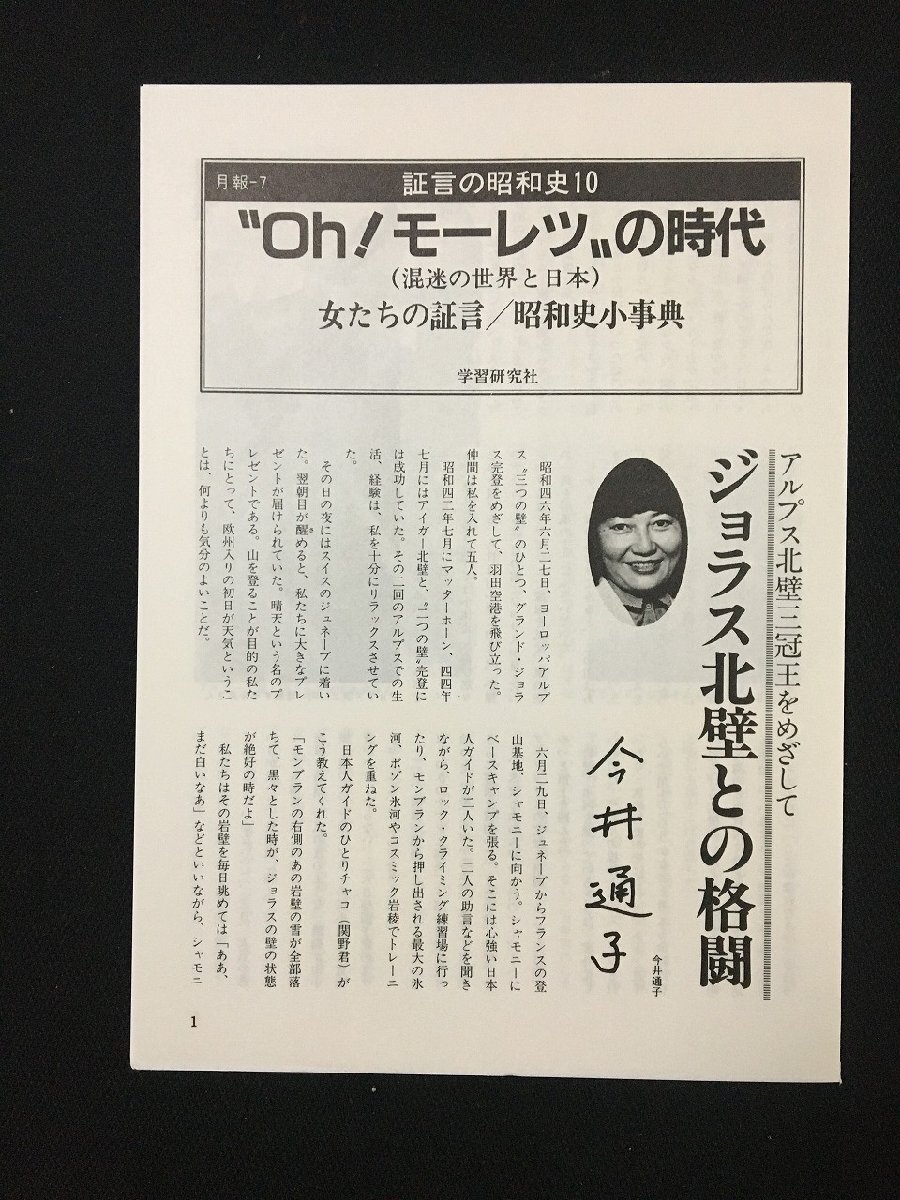 月報-7
証言の昭和史10
〝Oh!モーレツ〟の時代
(混迷の世界と日本)
女たちの証言/昭和史小事典
学習研究社
アルプス北壁三冠王をめざして
ジョラス北壁との格闘
今井通子
今井通子
昭和四六年六月二七日、ヨーロッパアルプ
ス〝三つの壁〟のひとつ、グランド・ジョラ
ス完登をめざして、羽田空港を飛び立った。
仲間は私を入れて五人。
昭和四二年七月にマッターホーン、四四年
七月にはアイガー北壁と、〝二つの壁〟完登に
は成功していた。その二回のアルプスでの生
活、経験は、私を十分にリラックスさせてい
た。
その日の夜にはスイスのジュネーブに着い
た。翌朝目が醒めると、私たちに大きなプレ
ゼントが届けられていた。晴天という名のプ
レゼントである。山を登ることが目的の私た
ちにとって、欧州入りの初日が天気というこ
とは、何よりも気分のよいことだ。
六月二九日、ジュネーブからフランスの登
山基地、シャモニーに向かう。シャモニーに
ベースキャンプを張る。そこには心強い日本
人ガイドが二人いた。二人の助言などを聞き
ながら、ロック・クライミング練習場に行っ
たり、モンブランから押し出される最大の氷
河、ボゾン氷河やコスミック岩稜でトレーニ
ングを重ねた。
日本人ガイドのひとりチャコ(関野君)が
こう教えてくれた。
「モンブランの右側のあの岩壁の雪が全部落
ちて、黒々とした時が、ジョラスの壁の状態
が絶好の時だよ」
私たちはその岩壁を毎日眺めては「ああ、
まだ白いなあ」などといいながら、シャモニ
1